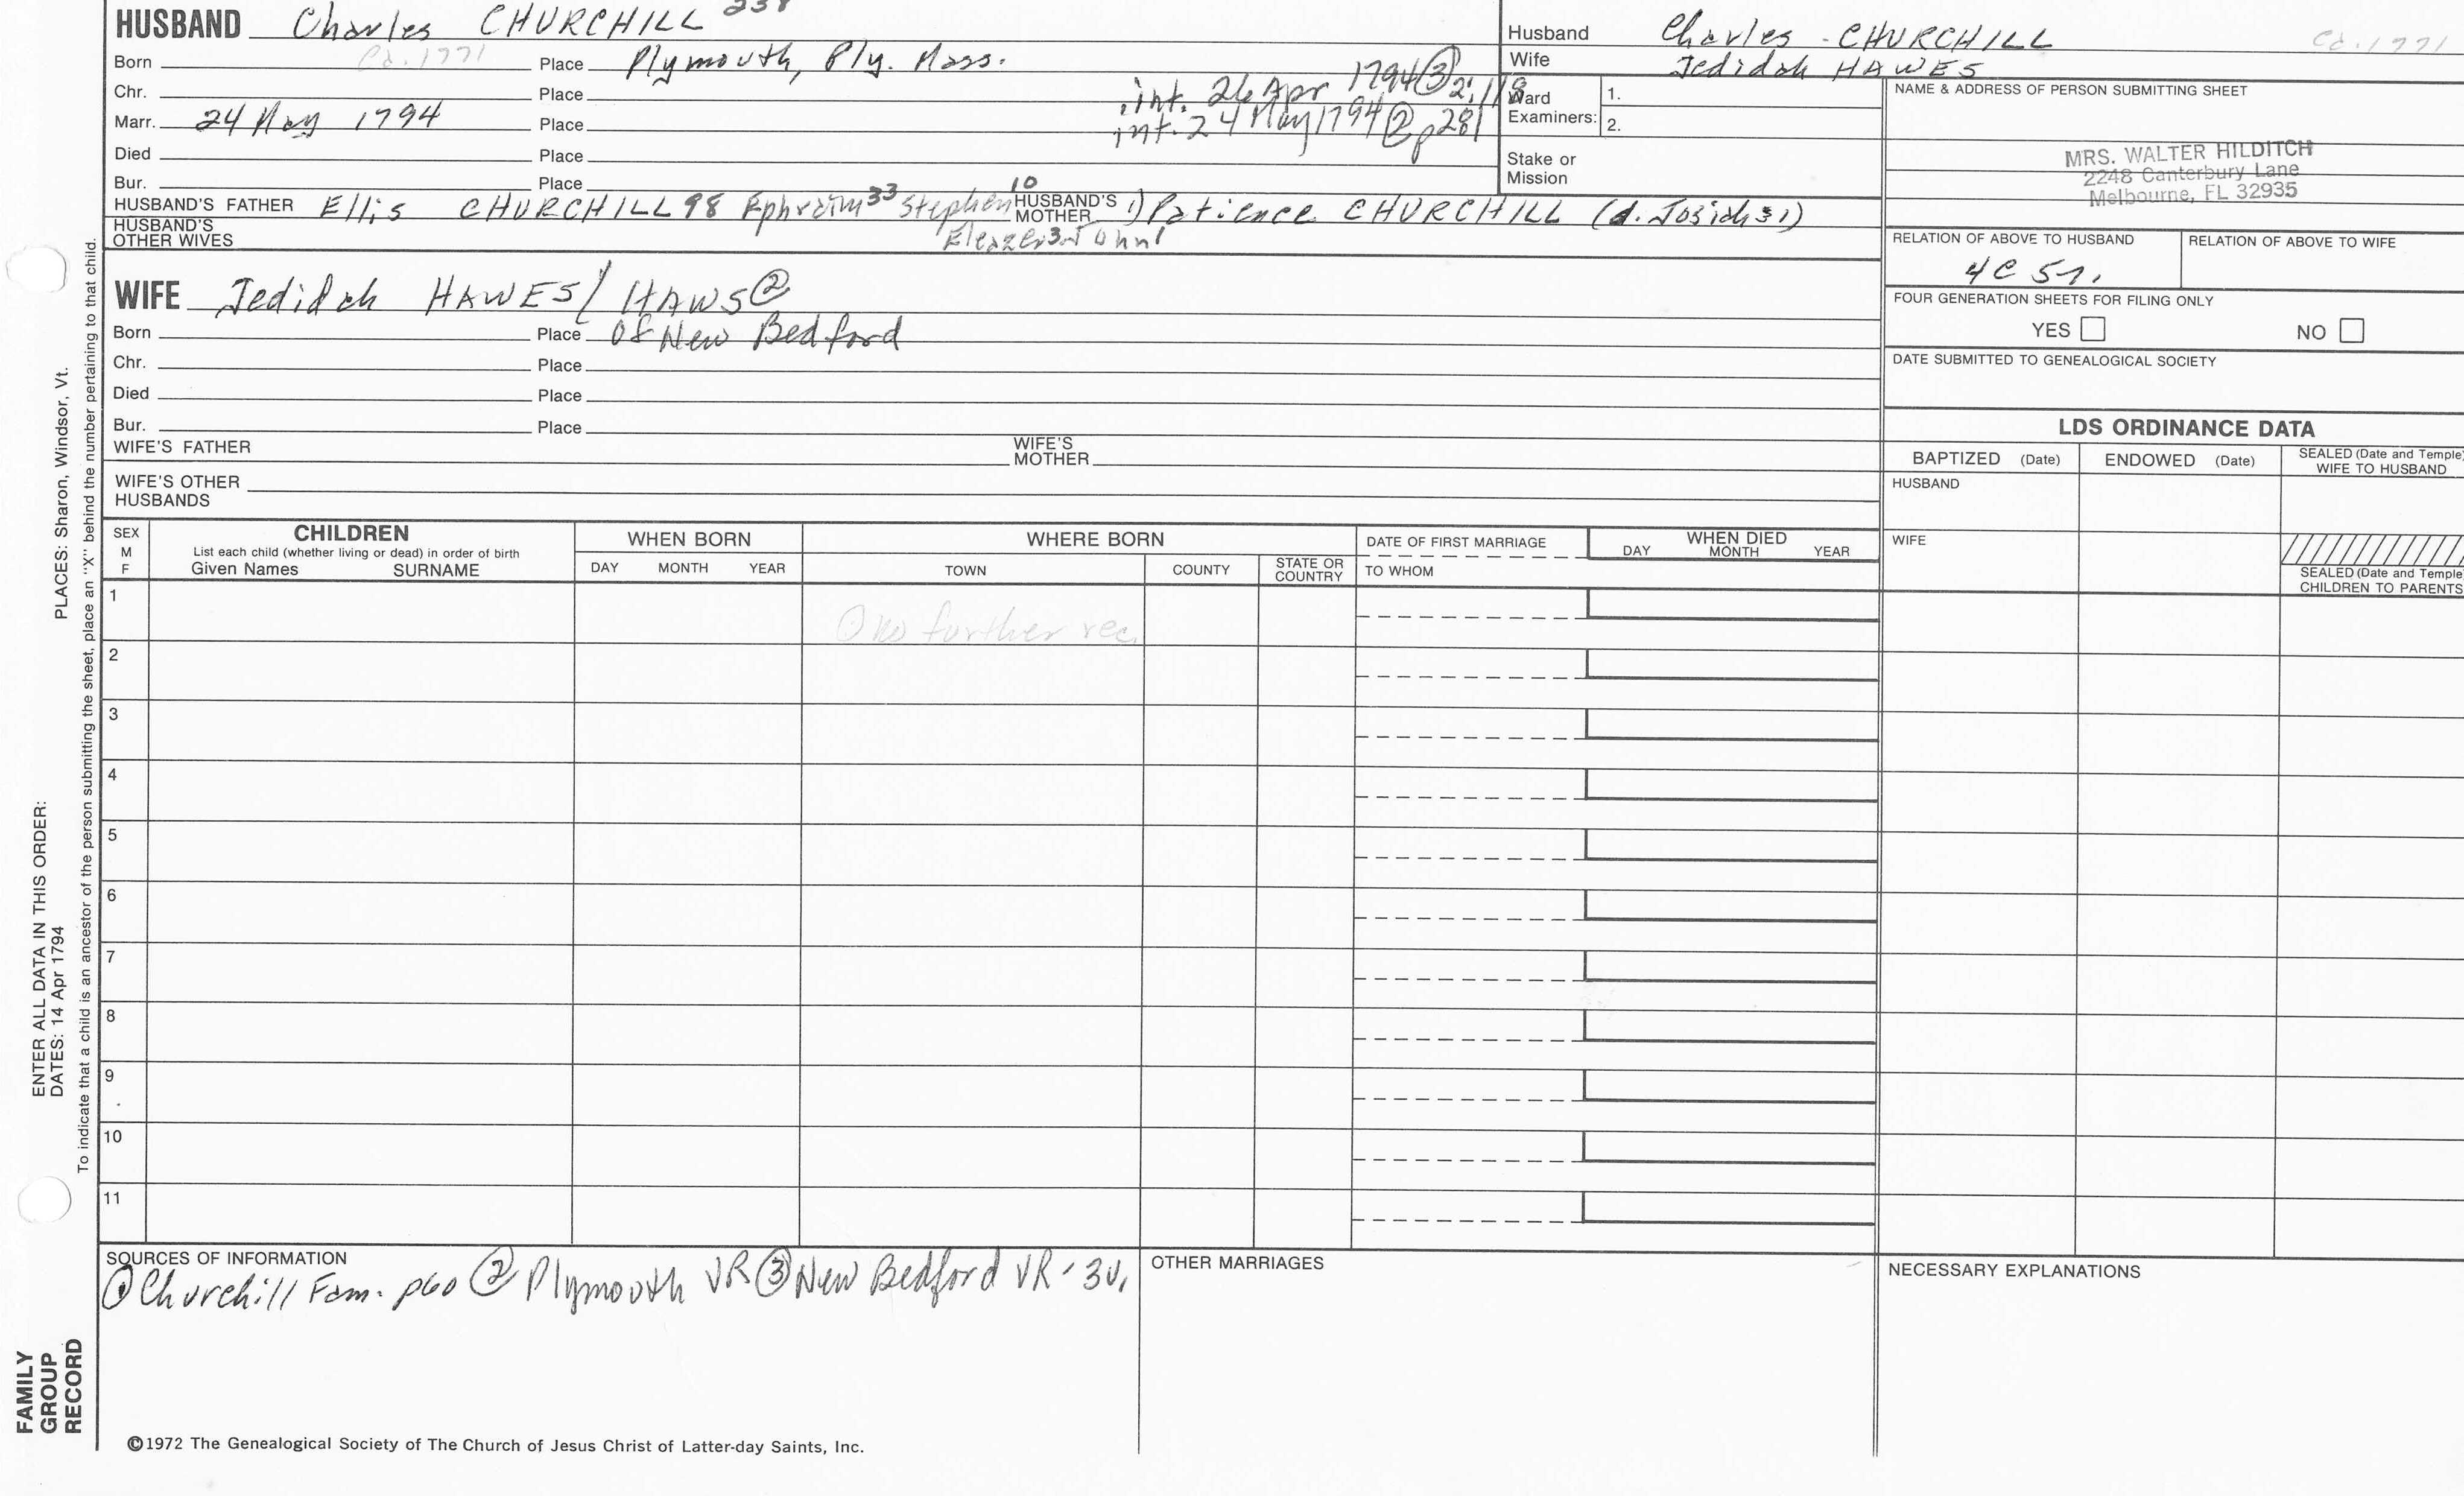 HUSBAND Charles CHURCHILL 238
Born Cd. 1771 Place Plymouth, Ply. Mass.
Chr. Place int. 26 Apr 1794 ③ 2:118
Marr. 24 May 1794 Place int. 24 May 1794 ② p281
Died Place
Bur. Place
HUSBAND'S FATHER Ellis CHURCHILL 98 Ephraim 33 Stephen 10 HUSBAND'S MOTHER 1) Patience CHURCHILL (d. Josiah 31)
HUSBAND'S OTHER WIVES Eleazer 3 John 1
Husband Charles - CHURCHILL Cd. 1771
Wife Jedidah HAWES
Ward Examiners: 1.
2.
Stake or Mission
NAME & ADDRESS OF PERSON SUBMITTING SHEET
MRS. WALTER HILDITCH
2248 Canterbury Lane
Melbourne, FL 32935
RELATION OF ABOVE TO HUSBAND RELATION OF ABOVE TO WIFE
4C 5r.
FOUR GENERATION SHEETS FOR FILING ONLY
YES NO
DATE SUBMITTED TO GENEALOGICAL SOCIETY
WIFE Jedidah HAWES / HAWS ②
Born Place Of New Bedford
Chr. Place
Died Place
Bur. Place
WIFE'S FATHER WIFE'S MOTHER
WIFE'S OTHER HUSBANDS
LDS ORDINANCE DATA
BAPTIZED (Date) ENDOWED (Date) SEALED (Date and Temple) WIFE TO HUSBAND
HUSBAND
WIFE
SEALED (Date and Temple) CHILDREN TO PARENTS
SEX M F CHILDREN WHEN BORN WHERE BORN DATE OF FIRST MARRIAGE WHEN DIED
List each child (whether living or dead) in order of birth
Given Names SURNAME DAY MONTH YEAR TOWN COUNTY STATE OR COUNTRY TO WHOM DAY MONTH YEAR
1 no further rec.
2
3
4
5
6
7
8
9
10
11
SOURCES OF INFORMATION
① Churchill Fam. p60 ② Plymouth VR ③ New Bedford VR - 3v.
OTHER MARRIAGES
NECESSARY EXPLANATIONS
©1972 The Genealogical Society of The Church of Jesus Christ of Latter-day Saints, Inc.
FAMILY GROUP RECORD
ENTER ALL DATA IN THIS ORDER:
DATES: 14 Apr 1794 PLACES: Sharon, Windsor, Vt.
To indicate that a child is an ancestor of the person submitting the sheet, place an "X" behind the number pertaining to that child.